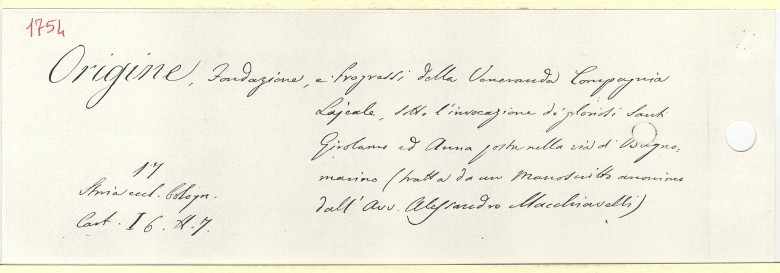 1754
Origine, Fondazione, e Progressi della Veneranda Compagnia
Laicale, sotto l'invocazione di gloriosi Santi
Girolamo ed Anna posta nella via di Bagno-
marino (tratta da un Manoscritto anonimo
dall'Avv. Alessandro Macchiavelli)
17
Storia eccl. Bologn.
Cart. I 6. H. 7.